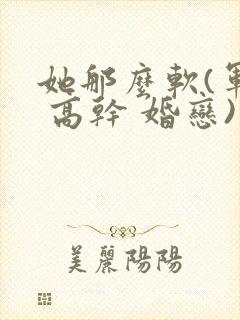 她那麼軟(軍
高幹 婚戀)
美麗陽陽